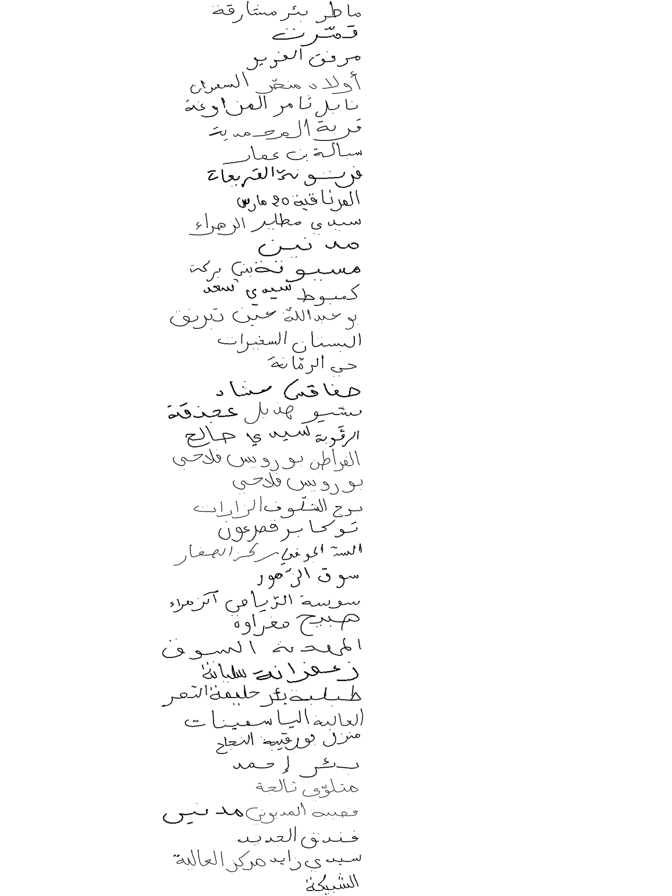 ماطر بئر مشارقة
قمّرت
مرفق الغرير
أولاد منصر السعيران
نابل ثامر الهنراوغة
قرية المحمدية
سبالة بن عمار
فريونة القريعات
المرناقية 20 مارس
سيدي مطير الزهراء
مدنين
مسيونة بني بركة
كمبوط سيدي سعد
بوعبدالله عين تبرنق
البستان السغيرات
حي الرمّانة
صفاقس مشاد
عجنقة
الرقوبة سيدي صالح
القراطن بورويس فلاحي
بورويس فلاحي
برج الشلوف الزارات
توكابر قصرعون
الستة الجوفي مركز الصفار
سوق الزّهور
سوسة الرّياض الزهراء
صبيح مغراوة
المهدية السوق
زعفرانة سليانة
طبلبة بئر حليمة التمر
العالية الياسمينات
منزل بورقيبة النجاح
بئر إحمد
متلوّي ثالجة
قصيبة المديوني مدنين
فندق الحديد
سيدي زايد مركز العالية
الشبيكة